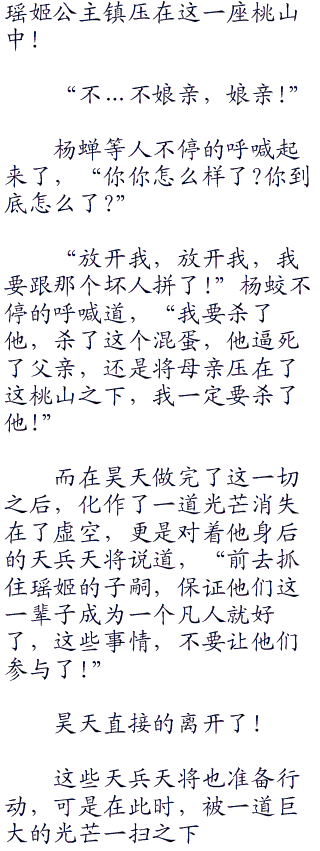 瑶姬公主镇压在这一座桃山
中！
“不…不娘亲，娘亲！”
杨蝉等人不停的呼喊起
来了，“你你怎么样了？你到
底怎么了？”
“放开我，放开我，我
要跟那个坏人拼了！”杨蛟不
停的呼喊道，“我要杀了
他，杀了这个混蛋，他逼死
了父亲，还是将母亲压在了
这桃山之下，我一定要杀了
他！”
而在昊天做完了这一切
之后，化作了一道光芒消失
在了虚空，更是对着他身后
的天兵天将说道，“前去抓
住瑶姬的子嗣，保证他们这
一辈子成为一个凡人就好
了，这些事情，不要让他们
参与了！”
昊天直接的离开了！
这些天兵天将也准备行
动，可是在此时，被一道巨
大的光芒一扫之下